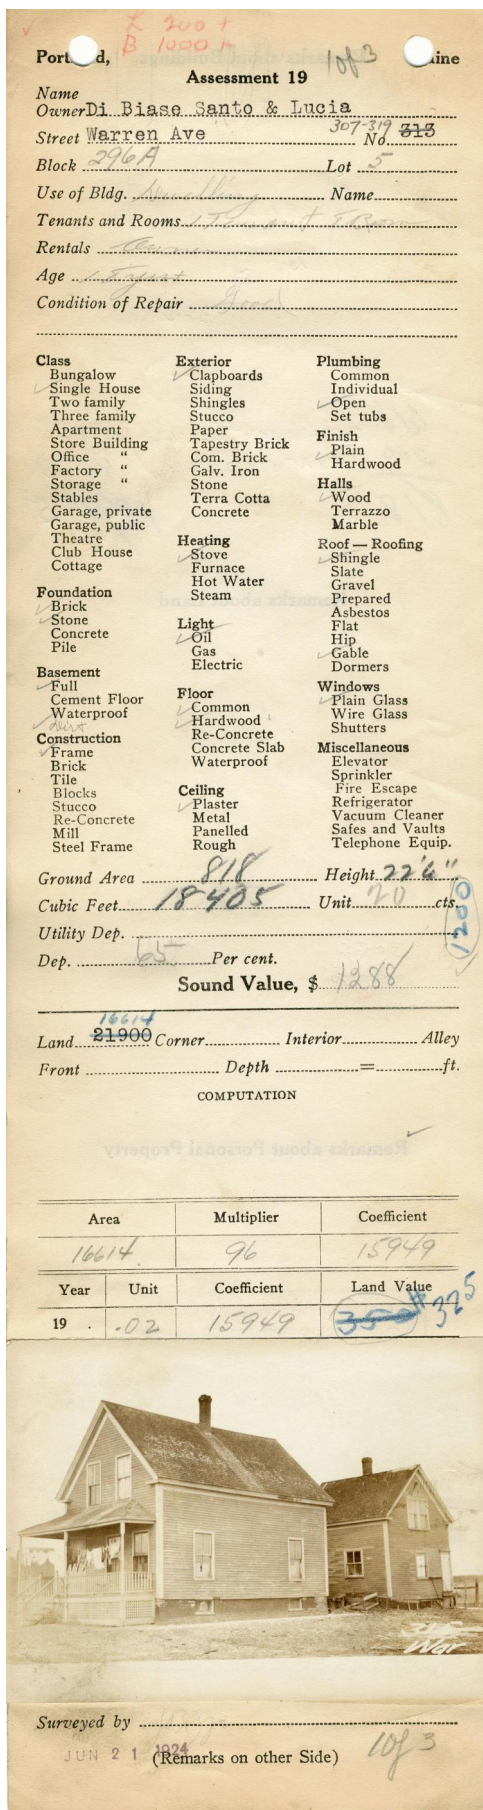 L 200 +
B 1000 +
Portland, 1 of 3 Maine
Assessment 19
Name
Owner Di Biase Santo & Lucia
Street Warren Ave 307-319 No 313
Block 296A Lot 5
Use of Bldg. Dwelling Name
Tenants and Rooms 1 Tenant
Rentals Owner
Age
Condition of Repair Good
Class
Bungalow
Single House
Two family
Three family
Apartment
Store Building
Office "
Factory "
Storage "
Stables
Garage, private
Garage, public
Theatre
Club House
Cottage
Foundation
Brick
Stone
Concrete
Pile
Basement
Full
Cement Floor
Waterproof
Dirt
Construction
Frame
Brick
Tile
Blocks
Stucco
Re-Concrete
Mill
Steel Frame
Exterior
Clapboards
Siding
Shingles
Stucco
Paper
Tapestry Brick
Com. Brick
Galv. Iron
Stone
Terra Cotta
Concrete
Heating
Stove
Furnace
Hot Water
Steam
Light
Oil
Gas
Electric
Floor
Common
Hardwood
Re-Concrete
Concrete Slab
Waterproof
Ceiling
Plaster
Metal
Panelled
Rough
Plumbing
Common
Individual
Open
Set tubs
Finish
Plain
Hardwood
Halls
Wood
Terrazzo
Marble
Roof — Roofing
Shingle
Slate
Gravel
Prepared
Asbestos
Flat
Hip
Gable
Dormers
Windows
Plain Glass
Wire Glass
Shutters
Miscellaneous
Elevator
Sprinkler
Fire Escape
Refrigerator
Vacuum Cleaner
Safes and Vaults
Telephone Equip.
Ground Area 818 Height 22'6"
Cubic Feet 18405 Unit 20 cts.
Utility Dep. 1200
Dep. 65 Per cent.
Sound Value, $ 1288
16614
Land 21900 Corner Interior Alley
Front Depth = ft.
COMPUTATION
Area Multiplier Coefficient
16614 96 15949
Year Unit Coefficient Land Value
19 . .02 15949 350 $325
War
Surveyed by
JUN 21 1924 (Remarks on other Side) 1 of 3